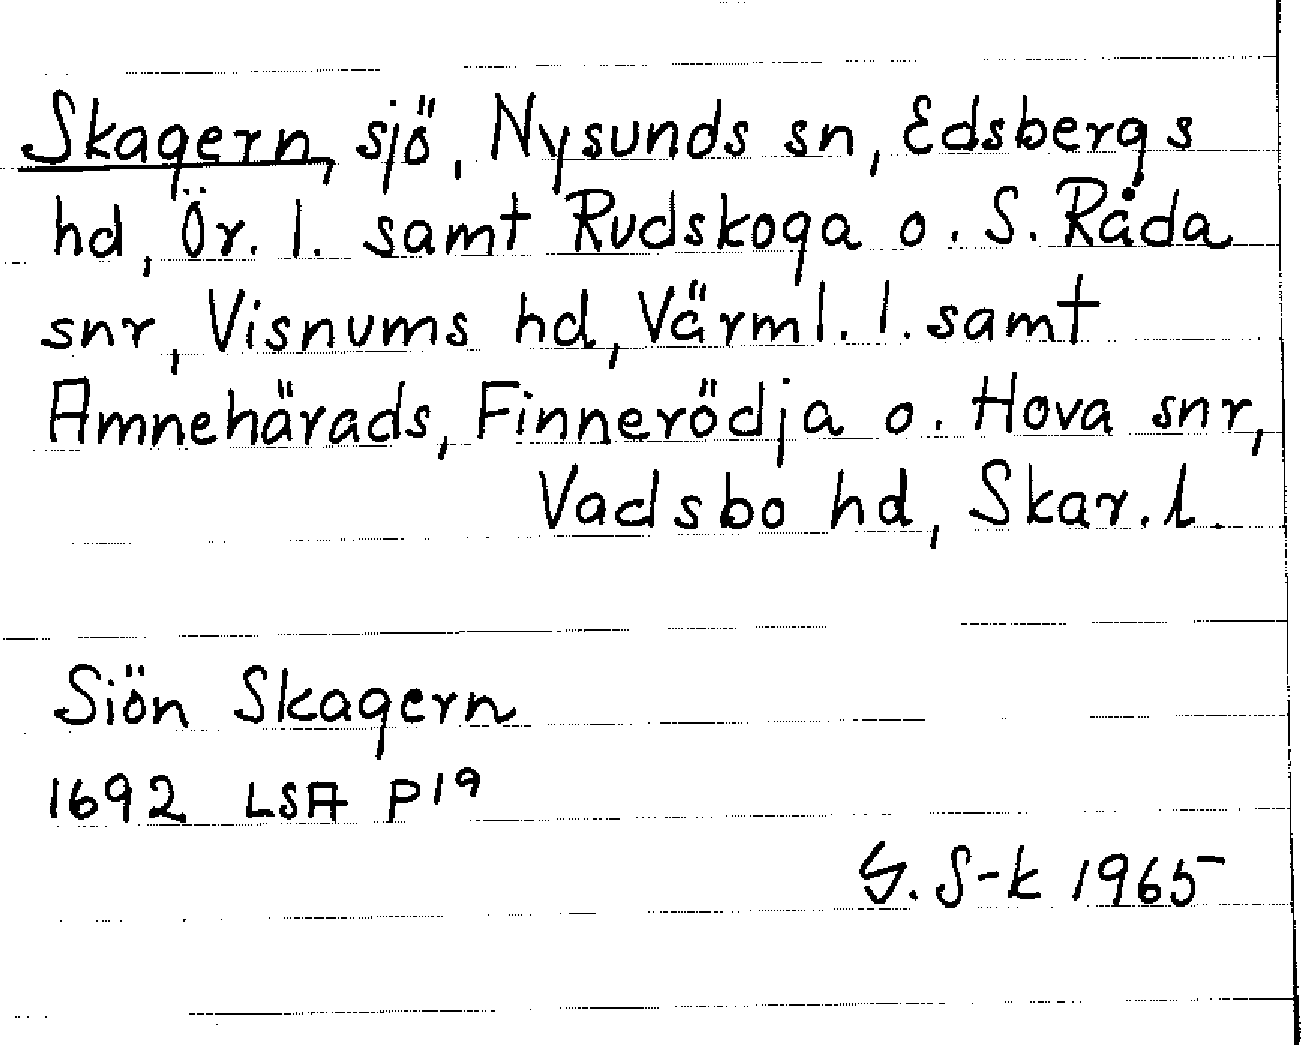 Skagern, sjö, Nysunds sn, Edsbergs
hd, Ör. l. samt Rudskoga o. S. Råda
snr, Visnums hd, Värml. l. samt
Amnehärads, Finnerödja o. Hova snr,
Vadsbo hd, Skar. l.
Siön Skagern
1692 LSA P19
G. S-k 1965